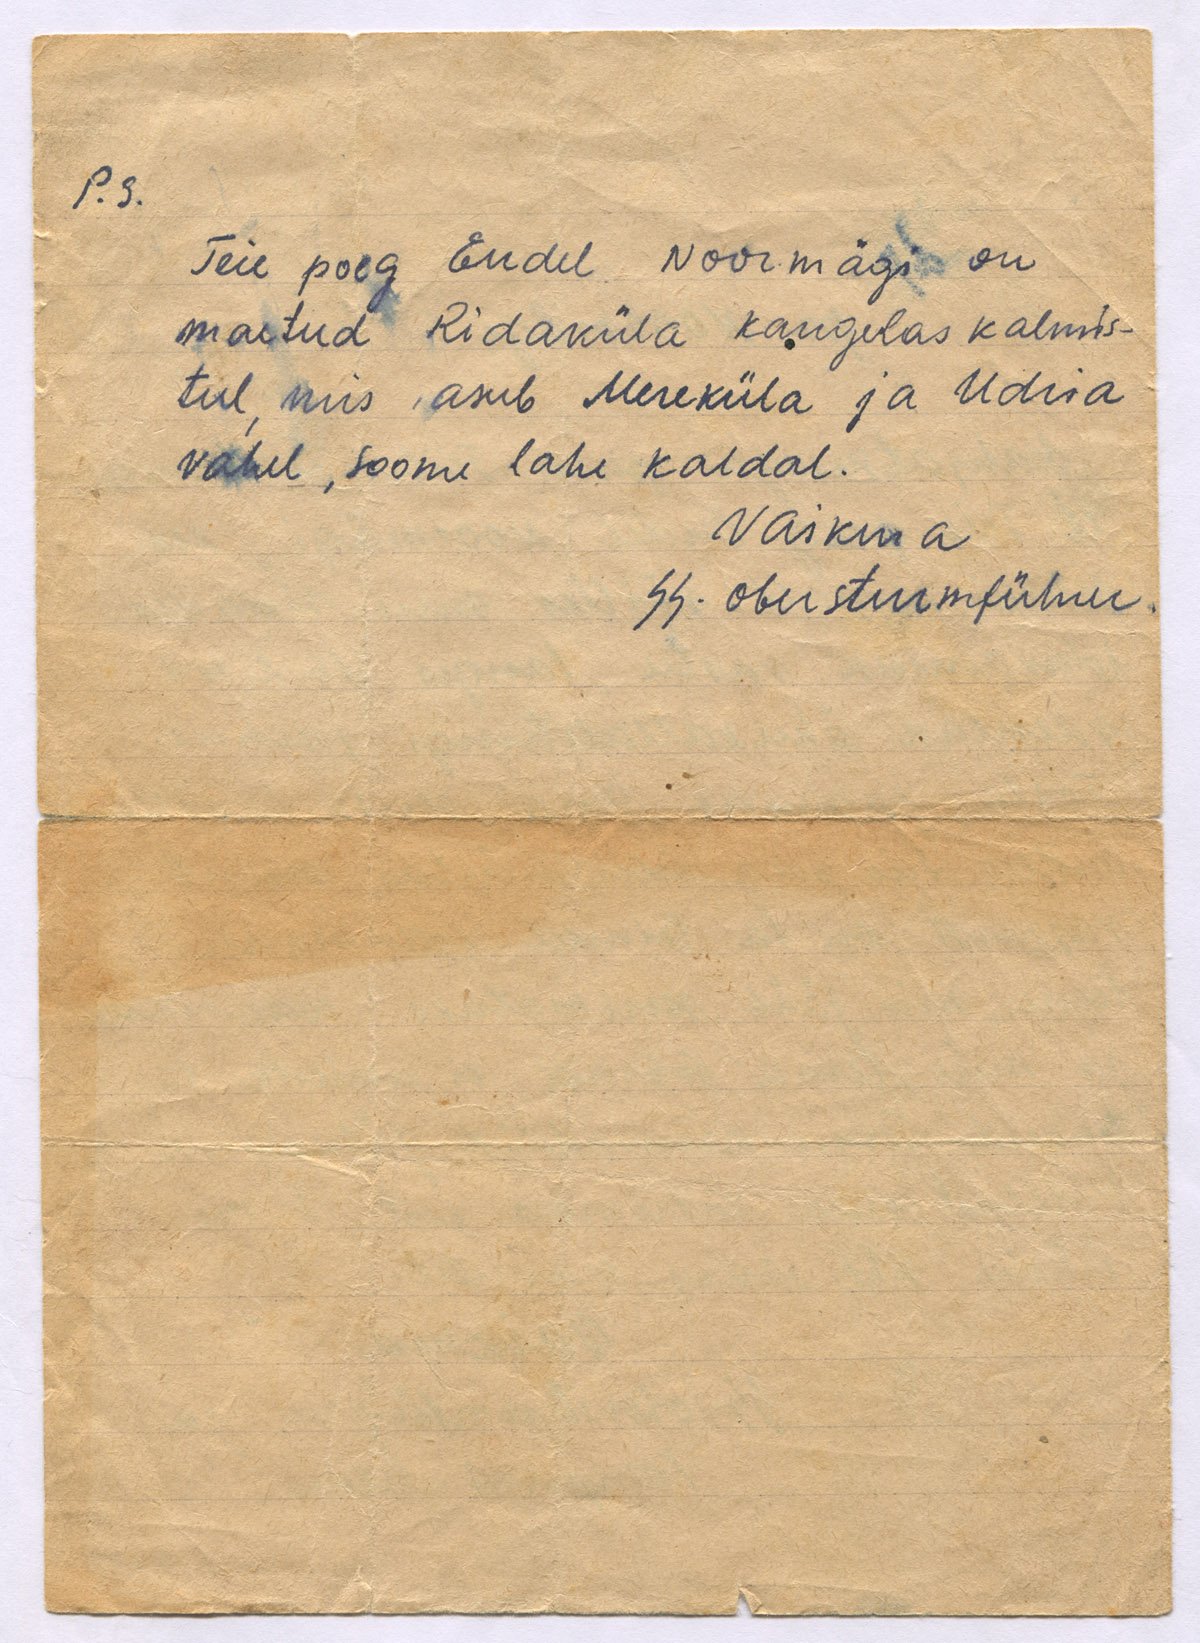 P.S.
Teie poeg Endel Noormägi on
maetud Ridaküla kangelaskalmis-
tul, mis asub Mereküla ja Udria
vahel, soome lahe kaldal.
Vaikma
SS. obersturmführer.